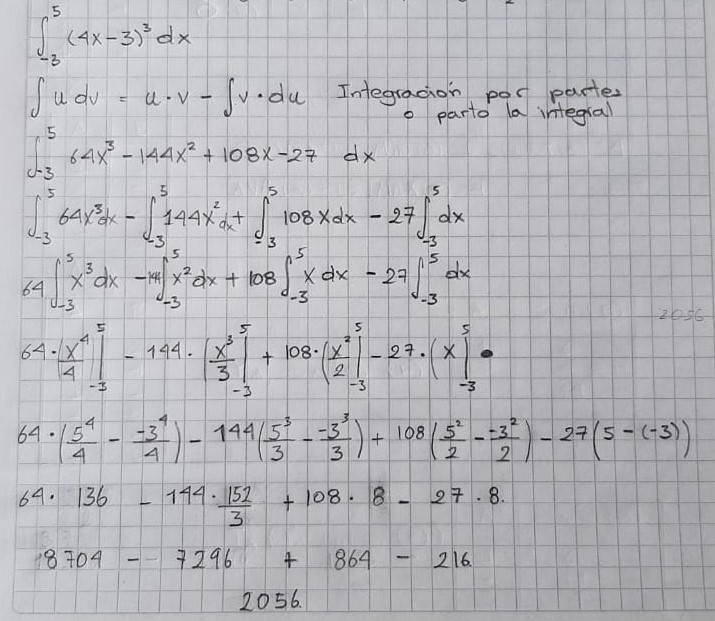 ∫₋₃⁵ (4x-3)³ dx
∫u dv = u·v - ∫v·du Integración por partes
o parto la integral
∫₋₃⁵ 64x³ - 144x² + 108x - 27 dx
∫₋₃⁵ 64x³dx - ∫₋₃⁵ 144x²dx + ∫₋₃⁵ 108xdx - 27∫₋₃⁵ dx
64∫₋₃⁵ x³dx - 144∫₋₃⁵ x²dx + 108∫₋₃⁵ x dx - 27∫₋₃⁵ dx
2056
64·(x⁴/4|₋₃⁵ - 144·(x³/3|₋₃⁵ + 108·(x²/2|₋₃⁵ - 27·(x|₋₃⁵
64·(5⁴/4 - -3⁴/4) - 144(5³/3 - -3³/3) + 108(5²/2 - -3²/2) - 27(5-(-3))
64· 136 - 144·152/3 + 108· 8 - 27 · 8.
8704 - 7296 + 864 - 216.
2056.